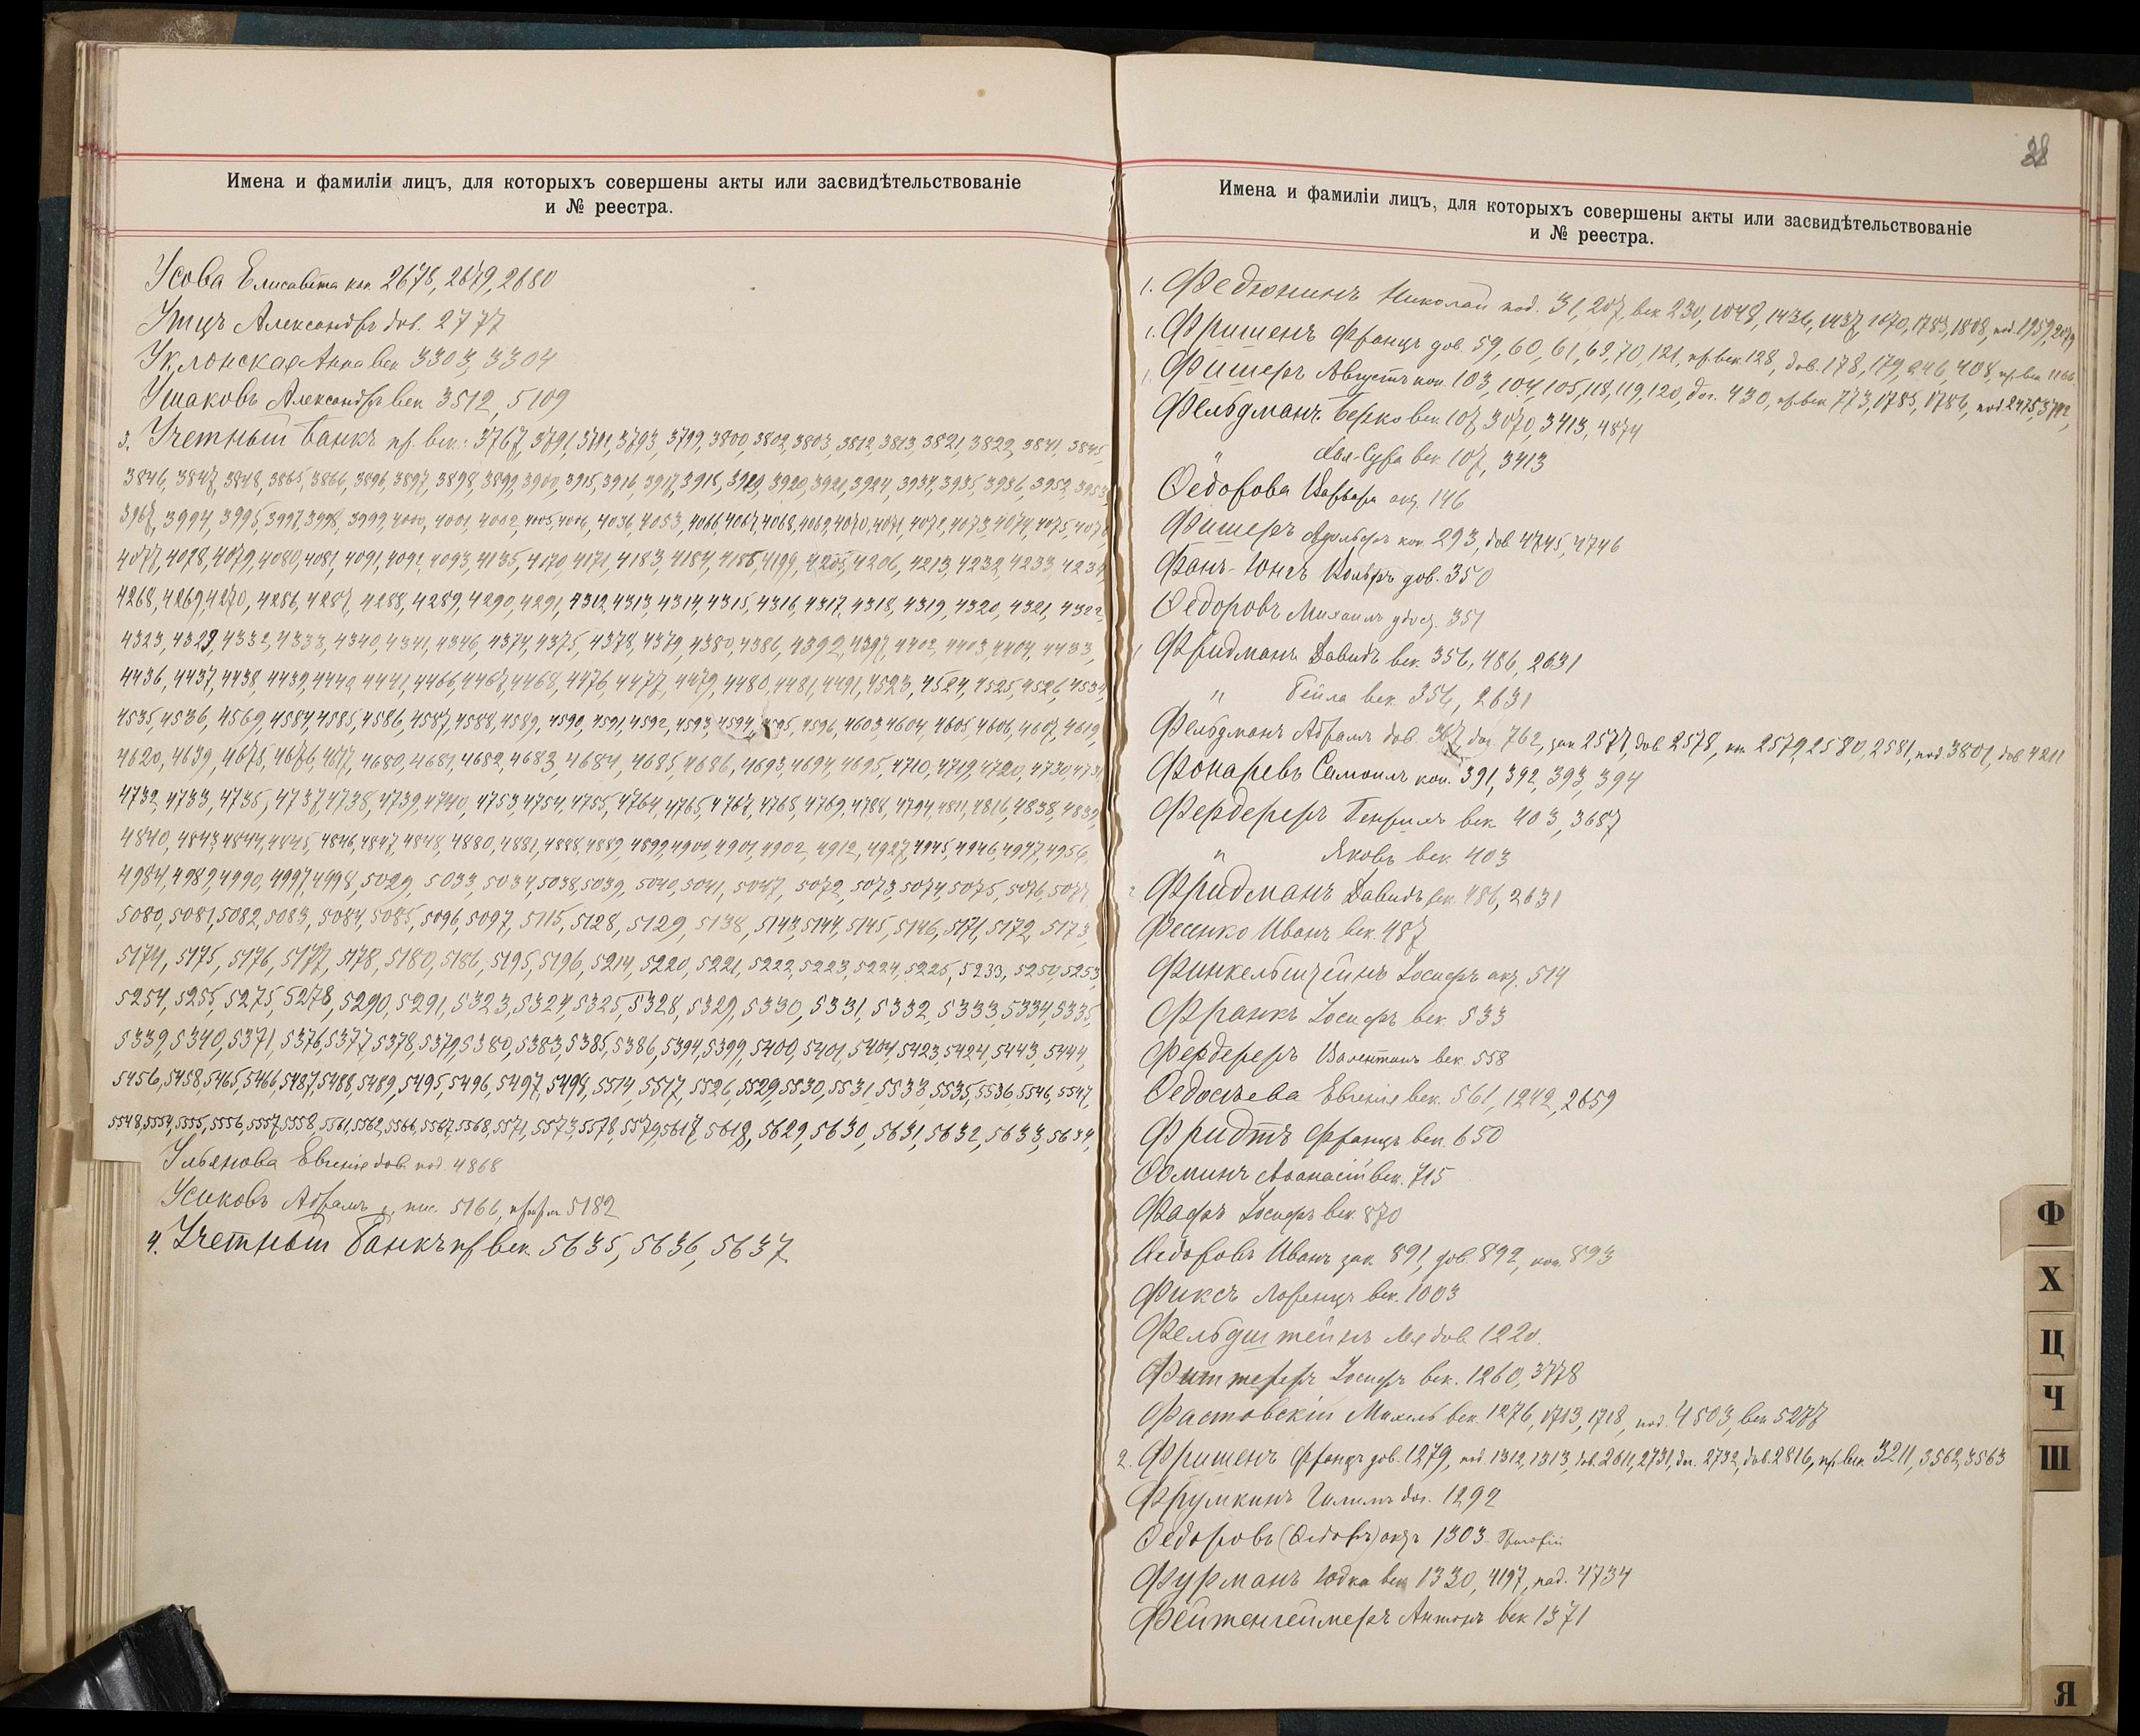 Имена и фамиліи лицъ, для которыхъ совершены акты или засвидѣтельствованіе
и № реестра.
Усова Елисавета коп. 2678, 2679, 2680
Утцъ Александръ дов. 2777
Уклонская Анна век 3303, 3304
Ушаковъ Александръ век 3512, 5109
3. Учетный Банкъ пр. век. 3767, 3791, 3792, 3793, 3799, 3800, 3802, 3803, 3812, 3813, 3821, 3822, 3841, 3845,
3846, 3847, 3848, 3865, 3866, 3896, 3897, 3898, 3899, 3900, 3915, 3916, 3917, 3918, 3919, 3920, 3921, 3924, 3934, 3935, 3936, 3952, 3953
3967, 3994, 3995, 3997, 3998, 3999, 4000, 4001, 4002, 4005, 4006, 4036, 4053, 4066, 4067, 4068, 4069, 4070, 4071, 4072, 4073, 4074, 4075, 4076
4077, 4078, 4079, 4080, 4081, 4091, 4092, 4093, 4135, 4170, 4171, 4183, 4184, 4185, 4199, 4205, 4206, 4213, 4232, 4233, 4234,
4268, 4269, 4270, 4286, 4287, 4288, 4289, 4290, 4291, 4312, 4313, 4314, 4315, 4316, 4317, 4318, 4319, 4320, 4321, 4322,
4323, 4329, 4332, 4333, 4340, 4341, 4346, 4374, 4375, 4378, 4379, 4380, 4386, 4392, 4397, 4402, 4403, 4404, 4433,
4436, 4437, 4438, 4439, 4440, 4441, 4466, 4467, 4468, 4476, 4477, 4479, 4480, 4481, 4491, 4523, 4524, 4525, 4526, 4534,
4535, 4536, 4569, 4584, 4585, 4586, 4587, 4588, 4589, 4590, 4591, 4592, 4593, 4594, 4595, 4596, 4603, 4604, 4605, 4606, 4607, 4619,
4620, 4639, 4675, 4676, 4677, 4680, 4681, 4682, 4683, 4684, 4685, 4686, 4693, 4694, 4695, 4710, 4719, 4720, 4730, 4731
4732, 4733, 4735, 4737, 4738, 4739, 4740, 4753, 4754, 4755, 4764, 4765, 4767, 4768, 4769, 4788, 4794, 4811, 4816, 4838, 4839,
4840, 4843, 4844, 4845, 4846, 4847, 4848, 4880, 4881, 4888, 4889, 4899, 4900, 4901, 4902, 4912, 4927, 4945, 4946, 4947, 4956,
4984, 4989, 4990, 4997, 4998, 5029, 5033, 5034, 5038, 5039, 5040, 5041, 5047, 5072, 5073, 5074, 5075, 5076, 5077,
5080, 5081, 5082, 5083, 5084, 5085, 5096, 5097, 5115, 5128, 5129, 5138, 5143, 5144, 5145, 5146, 5171, 5172, 5173,
5174, 5175, 5176, 5177, 5178, 5180, 5186, 5195, 5196, 5214, 5220, 5221, 5222, 5223, 5224, 5225, 5233, 5250, 5253
5254, 5255, 5275, 5278, 5290, 5291, 5323, 5324, 5325, 5328, 5329, 5330, 5331, 5332, 5333, 5334, 5335,
5339, 5340, 5371, 5376, 5377, 5378, 5379, 5380, 5383, 5385, 5386, 5394, 5399, 5400, 5401, 5404, 5423, 5424, 5443, 5444,
5456, 5458, 5465, 5466, 5487, 5488, 5489, 5495, 5496, 5497, 5498, 5514, 5517, 5526, 5529, 5530, 5531, 5533, 5535, 5536, 5546, 5547,
5548, 5554, 5555, 5556, 5557, 5558, 5561, 5562, 5566, 5567, 5568, 5571, 5573, 5578, 5579, 5617, 5618, 5629, 5630, 5631, 5632, 5633, 5634,
Ульянова Евгенія дов. под. 4868
Усиковъ Абрамъ 5166, 5182
4. Учетный Банкъ пр век. 5635, 5636, 5637
28
Имена и фамиліи лицъ, для которыхъ совершены акты или засвидѣтельствованіе
и № реестра.
1. Федюнинъ Николай под. 31, 207, век 230, 1048, 1436, 1437, 1670, 1783, 1808, под. 1959, 2079
1. Фришенъ Францъ дов. 59, 60, 61, 69, 70, 121, пр. век. 128, дов. 178, 179, 246, 408, пр. век 1166
1. Фишеръ Августъ коп. 103, 104, 105, 118, 119, 120, дог. 430, пр. век 773, 1785, 1786, под. 2475, 3792,
Фельдманъ Берко век 107, 3070, 3413, 4874
" Хая-Сура век. 107, 3413
Ѳедорова Варвара акц. 146
Фишеръ Адольфъ коп. 293, дов 4745, 4746
Фанъ-Юнгъ Вольфъ дов. 350
Ѳедоровъ Михаилъ удост. 351
1 Фридманъ Давидъ век. 356, 486, 2631
" Бейла век. 356, 2631
Фельдманъ Абрамъ дов. 367, дог. 762, зак 2577, дов. 2578, 2579, 2580, 2581, под 3801, дов 4211
Фонаревъ Самоилъ коп. 391, 392, 393, 394
Фердереръ Генрихъ век 403, 3687
" Яковъ век. 403
2 Фридманъ Давидъ век. 486, 2631
Фесенко Иванъ век. 487
Финкельштейнъ Іосифъ акц. 514
Франкъ Іосифъ век. 533
Фердереръ Валентинъ век. 558
Ѳедосѣева Евгенія век. 561, 1242, 2659
Фридтъ Францъ век. 650
Ѳоминъ Аѳанасій век. 715
Фафъ Іосифъ век. 870
Ѳедоровъ Иванъ зак. 891, дов. 892, коп. 893
Фиксъ Лоренцъ век. 1003
Фельдштейнъ Лея дов. 1220.
Фиттереръ Іосифъ век. 1260, 3778
Фастовскій Михель век. 1276, 1713, 1718, под. 4503, век 5277
2. Фришенъ Францъ дов. 1279, под. 1312, 1313, дов. 2611, 2731, дог. 2732, дов. 2816, пр. век. 3211, 3562, 3563
Фрумкинъ дог. 1292
Ѳедоровъ (Ѳедовъ) акцъ 1303
Фурманъ Юдка век 1330, 4197, под. 4734
Фейтенгеймеръ Антонъ век 1371
Ф
Х
Ц
Ч
Ш
Я